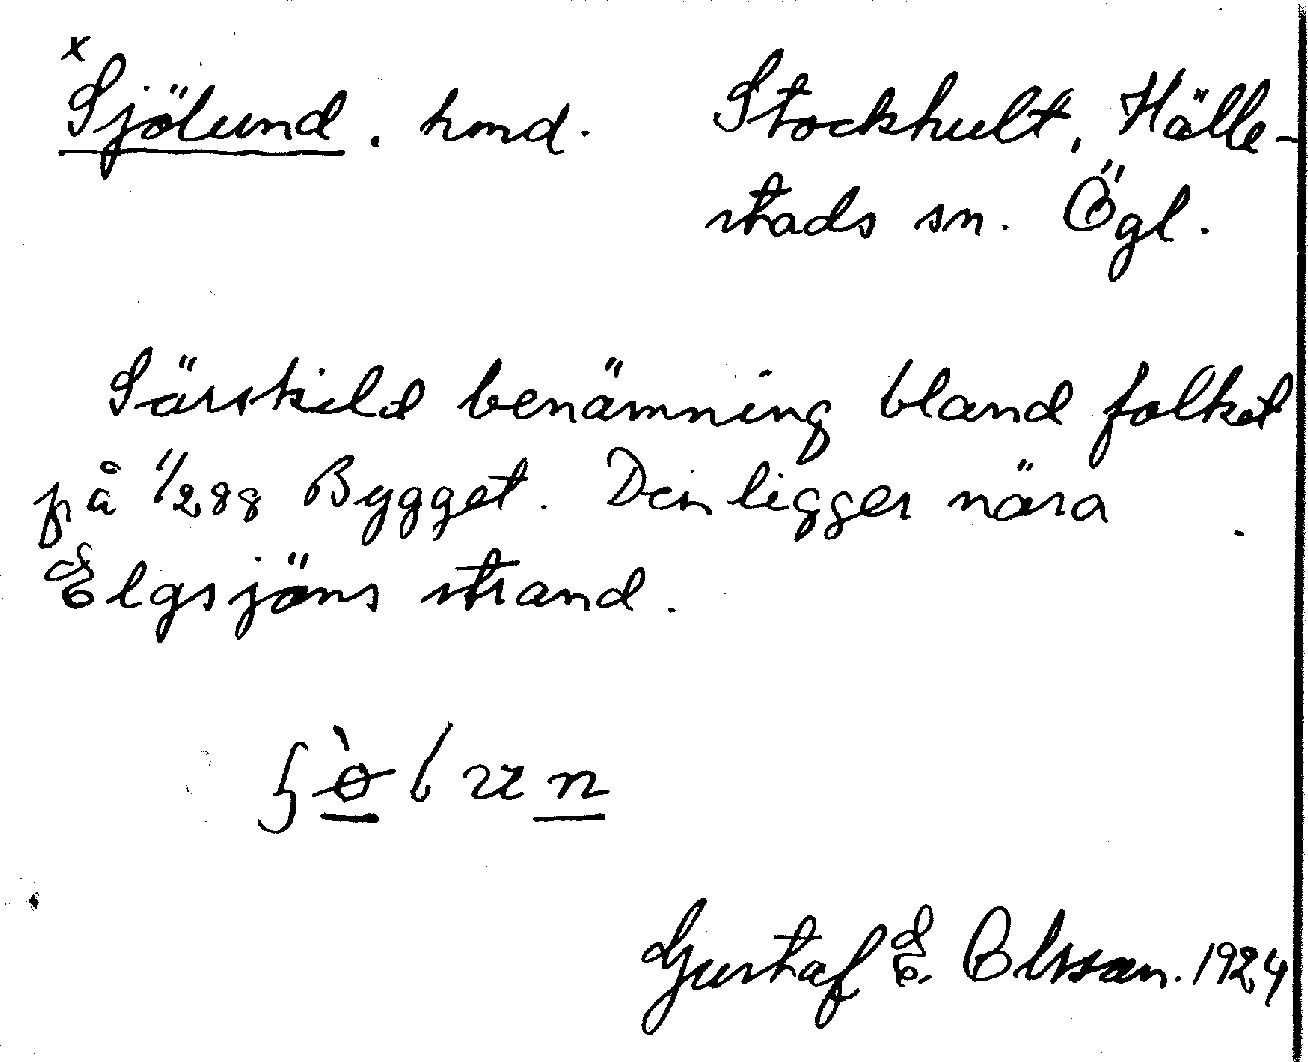 x
Sjölund. hmd. Stockhult, Hälle-
stads sn. Ögl.
Särskild benämning bland folket
på 1/288 Bygget. Den ligger nära
Elgsjöns strand.
Gustaf E. Olsson. 1924